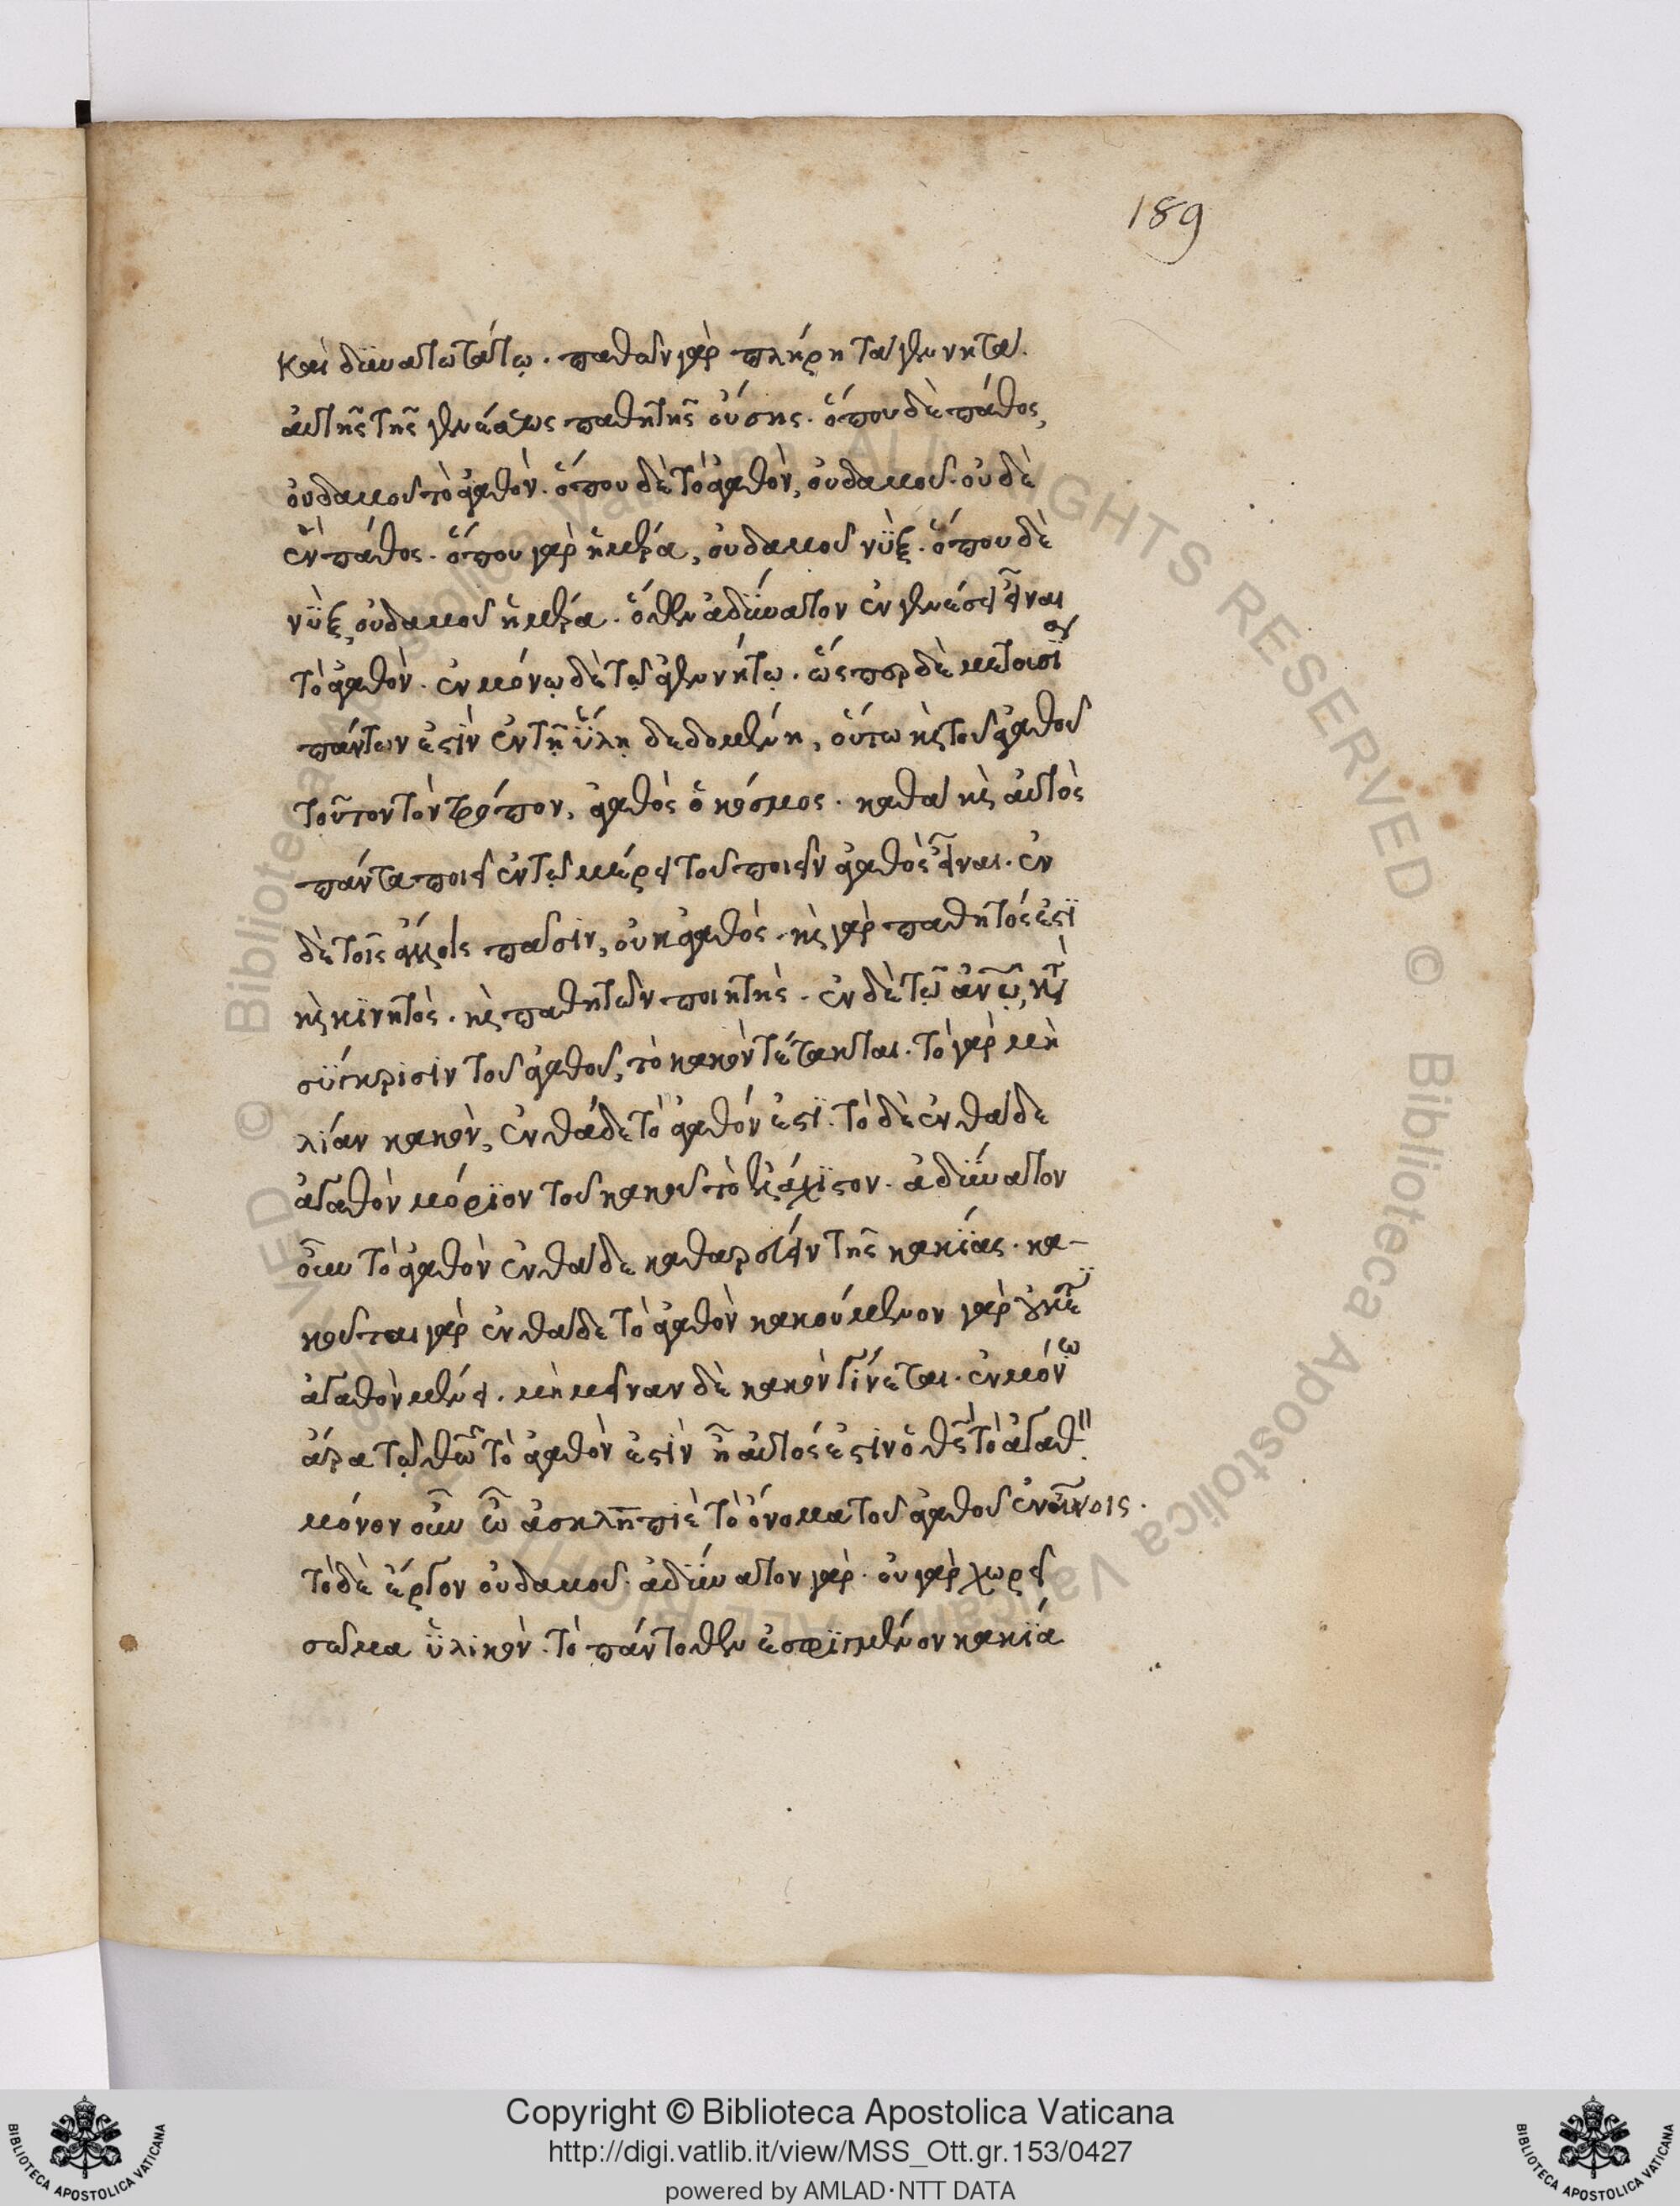 189
καὶ δϋνατωτάτω. παθῶν γὰρ πλήρη τὰ γεννητὰ.
αὐτῆς τῆς γενέσεως παθητῆς οὔσης. ὅπου δὲ πάθος,
οὐδαμοῦ τὸ ἀγαθὸν. ὅπου δὲ τὸ ἀγαθὸν, οὐδαμοῦ οὐδὲ
ἓν πάθος. ὅπου γὰρ ἡμέρα, οὐδαμοῦ νὺξ. ὅπου δὲ
νὺξ, οὐδαμοῦ ἡμέρα. ὅθεν ἀδύνατον ἐν γενέσει εἶναι
τὸ ἀγαθὸν. ἐν μόνῳ δὲ τῷ ἀγεννήτῳ. ὥσπερ δὲ μετουσία
πάντων ἐστὶν ἐν τῇ ὕλῃ δεδομένη, οὕτω καὶ τοῦ ἀγαθοῦ
τοῦτον τὸν τρόπον, ἀγαθὸς ὁ κόσμος. καθὰ καὶ αὐτὸς
πάντα ποιεῖ ἐν τῷ μέρει τοῦ ποιεῖν ἀγαθὸς εἶναι. ἐν
δὲ τοῖς ἄλλοις πᾶσιν, οὐκ ἀγαθός. καὶ γὰρ παθητός ἐστι
καὶ κινητὸς. καὶ παθητῶν ποιητὴς. ἐν δὲ τῷ ἀνῳ, κτ
σύγκρισιν τοῦ ἀγαθοῦ, τὸ κακὸν τέτακται. τὸ γὰρ μὴ
λίαν κακὸν, ἐνθάδε τὸ ἀγαθόν ἐστι. τὸ δὲ ἐνθάδε
ἀγαθὸν μόριον τοῦ κακοῦ τὸ ἐλάχιστον. ἀδύνατον
οὖν τὸ ἀγαθὸν ἐνθάδε καθαρεύειν τῆς κακίας. κα-
κοῦται γὰρ ἐνθάδε τὸ ἀγαθὸν κακούμενον γὰρ οὐκέτι
ἀγαθὸν μένει. μὴ μεῖναν δὲ κακὸν γίνεται. ἐν μόνῳ
ἄρα τῷ θῶ τὸ ἀγαθὸν ἐστὶν ἢ αὐτός ἐστιν ὁ θς τὸ ἀγαθὸν.
μόνον οὖν ὦ ἀσκληπιὲ τὸ ὄνομα τοῦ ἀγαθοῦ ἐν ἀνοις.
τὸ δὲ ἔργον οὐδαμοῦ. ἀδύνατον γὰρ. οὐ γὰρ χωρεῖ
σῶμα ὑλικὸν. τὸ πάντοθεν ἐσφιγμένον κακία
Copyright © Biblioteca Apostolica Vaticana
http://digi.vatlib.it/view/MSS_Ott.gr.153/0427
powered by AMLAD·NTT DATA